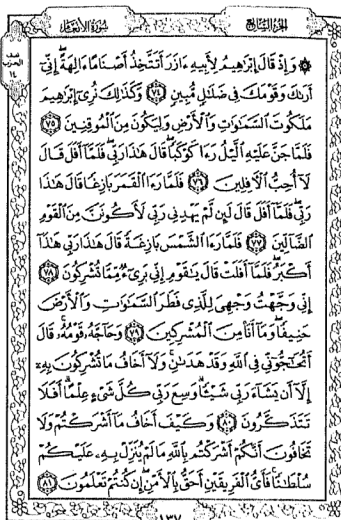 سُورَةُ الأَنْعَامِ
الجُزْءُ السَّابِعُ
نصف
الحزب
١٤
۞ وَإِذْ قَالَ إِبْرَٰهِيمُ لِأَبِيهِ ءَازَرَ أَتَتَّخِذُ أَصْنَامًا ءَالِهَةً إِنِّىٓ
أَرَىٰكَ وَقَوْمَكَ فِى ضَلَٰلٍ مُّبِينٍ ٧٤ وَكَذَٰلِكَ نُرِىٓ إِبْرَٰهِيمَ
مَلَكُوتَ ٱلسَّمَٰوَٰتِ وَٱلْأَرْضِ وَلِيَكُونَ مِنَ ٱلْمُوقِنِينَ ٧٥
فَلَمَّا جَنَّ عَلَيْهِ ٱلَّيْلُ رَءَا كَوْكَبًا قَالَ هَٰذَا رَبِّى فَلَمَّآ أَفَلَ قَالَ
لَآ أُحِبُّ ٱلْءَافِلِينَ ٧٦ فَلَمَّا رَءَا ٱلْقَمَرَ بَازِغًا قَالَ هَٰذَا
رَبِّى فَلَمَّآ أَفَلَ قَالَ لَئِن لَّمْ يَهْدِنِى رَبِّى لَأَكُونَنَّ مِنَ ٱلْقَوْمِ
ٱلضَّآلِّينَ ٧٧ فَلَمَّا رَءَا ٱلشَّمْسَ بَازِغَةً قَالَ هَٰذَا رَبِّى هَٰذَآ
أَكْبَرُ فَلَمَّآ أَفَلَتْ قَالَ يَٰقَوْمِ إِنِّى بَرِىٓءٌ مِّمَّا تُشْرِكُونَ ٧٨
إِنِّى وَجَّهْتُ وَجْهِىَ لِلَّذِى فَطَرَ ٱلسَّمَٰوَٰتِ وَٱلْأَرْضَ
حَنِيفًا وَمَآ أَنَا۠ مِنَ ٱلْمُشْرِكِينَ ٧٩ وَحَآجَّهُۥ قَوْمُهُۥ قَالَ
أَتُحَٰٓجُّوٓنِّى فِى ٱللَّهِ وَقَدْ هَدَىٰنِ وَلَآ أَخَافُ مَا تُشْرِكُونَ بِهِۦٓ
إِلَّآ أَن يَشَآءَ رَبِّى شَيْـًٔا وَسِعَ رَبِّى كُلَّ شَىْءٍ عِلْمًا أَفَلَا
تَتَذَكَّرُونَ ٨٠ وَكَيْفَ أَخَافُ مَآ أَشْرَكْتُمْ وَلَا
تَخَافُونَ أَنَّكُمْ أَشْرَكْتُم بِٱللَّهِ مَا لَمْ يُنَزِّلْ بِهِۦ عَلَيْكُمْ
سُلْطَٰنًا فَأَىُّ ٱلْفَرِيقَيْنِ أَحَقُّ بِٱلْأَمْنِ إِن كُنتُمْ تَعْلَمُونَ ٨١
١٣٧